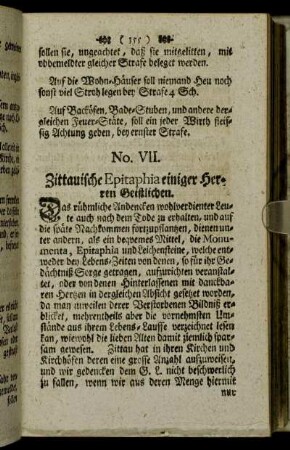 ( 335 )
sollen sie, ungeachtet, daß sie mitgelitten, mit
obbemeldter gleicher Strafe beleget werden.
Auf die Wohn-Häuser soll niemand Heu noch
sonst viel Stroh legen bey Strafe 4 Sch.
Auf Backöfen, Bade-Stuben, und andere der-
gleichen Feuer-Stäte, soll ein jeder Wirth fleis-
sig Achtung geben, bey ernster Strafe.
No. VII.
Zittauische Epitaphia einiger Her-
ren Geistlichen.
Das rühmliche Andencken wohlverdienter Leu-
te auch nach dem Tode zu erhalten, und auf
die späte Nachkommen fortzupflantzen, dienen un-
ter andern, als ein beqvemes Mittel, die Monu-
menta, Epitaphia und Leichensteine, welche ent-
weder bey Lebens-Zeiten von denen, so für ihr Ge-
dächtniß Sorge getragen, aufzurichten veranstal-
tet, oder von denen Hinterlassenen mit danckba-
ren Hertzen in dergleichen Absicht gesetzet worden,
da man zuweilen derer Verstorbenen Bildniß er-
blicket, mehrentheils aber die vornehmsten Um-
stände aus ihrem Lebens-Lauffe verzeichnet lesen
kan, wiewohl die lieben Alten damit ziemlich spar-
sam gewesen. Zittau hat in ihren Kirchen und
Kirchhöfen deren eine grosse Anzahl aufzuweisen,
und wir gedencken dem G. L. nicht beschwerlich
zu fallen, wenn wir aus deren Menge hiermit
nur